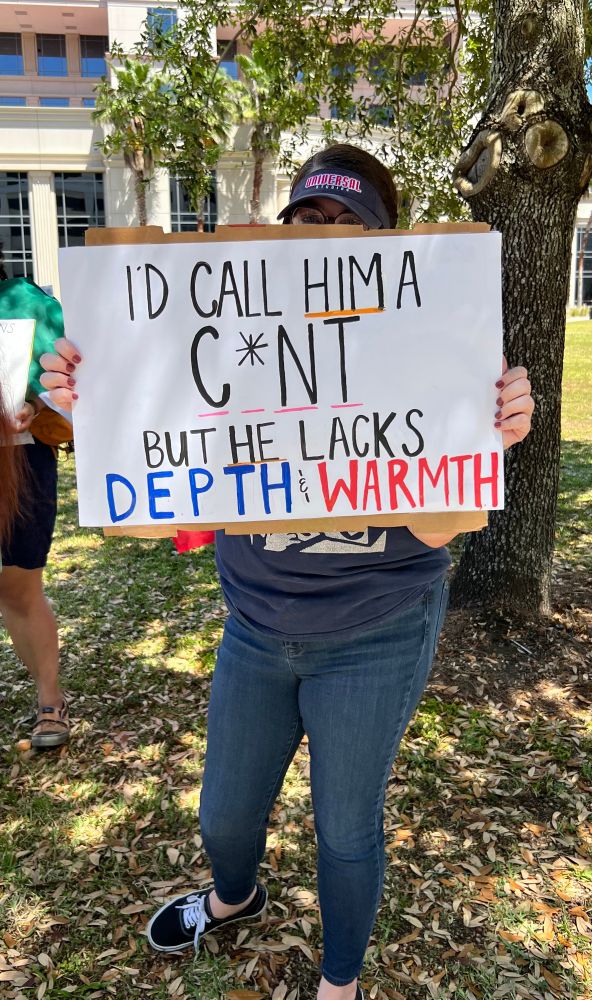 UNIVERSAL
STUDIOS
I'D CALL HIM A
C*NT
BUT HE LACKS
DEPTH & WARMTH
NS